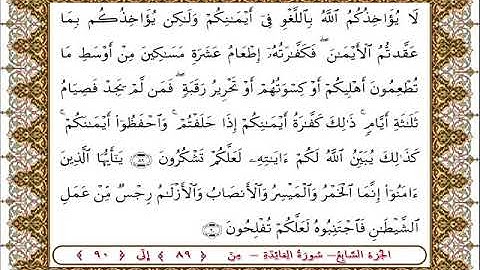 لَا يُؤَاخِذُكُمُ ٱللَّهُ بِٱللَّغْوِ فِىٓ أَيْمَـٰنِكُمْ وَلَـٰكِن يُؤَاخِذُكُم بِمَا
عَقَّدتُّمُ ٱلْأَيْمَـٰنَ ۖ فَكَفَّـٰرَتُهُۥٓ إِطْعَامُ عَشَرَةِ مَسَـٰكِينَ مِنْ أَوْسَطِ مَا
تُطْعِمُونَ أَهْلِيكُمْ أَوْ كِسْوَتُهُمْ أَوْ تَحْرِيرُ رَقَبَةٍ ۖ فَمَن لَّمْ يَجِدْ فَصِيَامُ
ثَلَـٰثَةِ أَيَّامٍ ۚ ذَٰلِكَ كَفَّـٰرَةُ أَيْمَـٰنِكُمْ إِذَا حَلَفْتُمْ ۚ وَٱحْفَظُوٓا۟ أَيْمَـٰنَكُمْ ۚ
كَذَٰلِكَ يُبَيِّنُ ٱللَّهُ لَكُمْ ءَايَـٰتِهِۦ لَعَلَّكُمْ تَشْكُرُونَ ٨٩ يَـٰٓأَيُّهَا ٱلَّذِينَ
ءَامَنُوٓا۟ إِنَّمَا ٱلْخَمْرُ وَٱلْمَيْسِرُ وَٱلْأَنصَابُ وَٱلْأَزْلَـٰمُ رِجْسٌ مِّنْ عَمَلِ
ٱلشَّيْطَـٰنِ فَٱجْتَنِبُوهُ لَعَلَّكُمْ تُفْلِحُونَ ٩٠
الجزء السابع - سورة المائدة - من ﴿ ٨٩ ﴾ إلى ﴿ ٩٠ ﴾